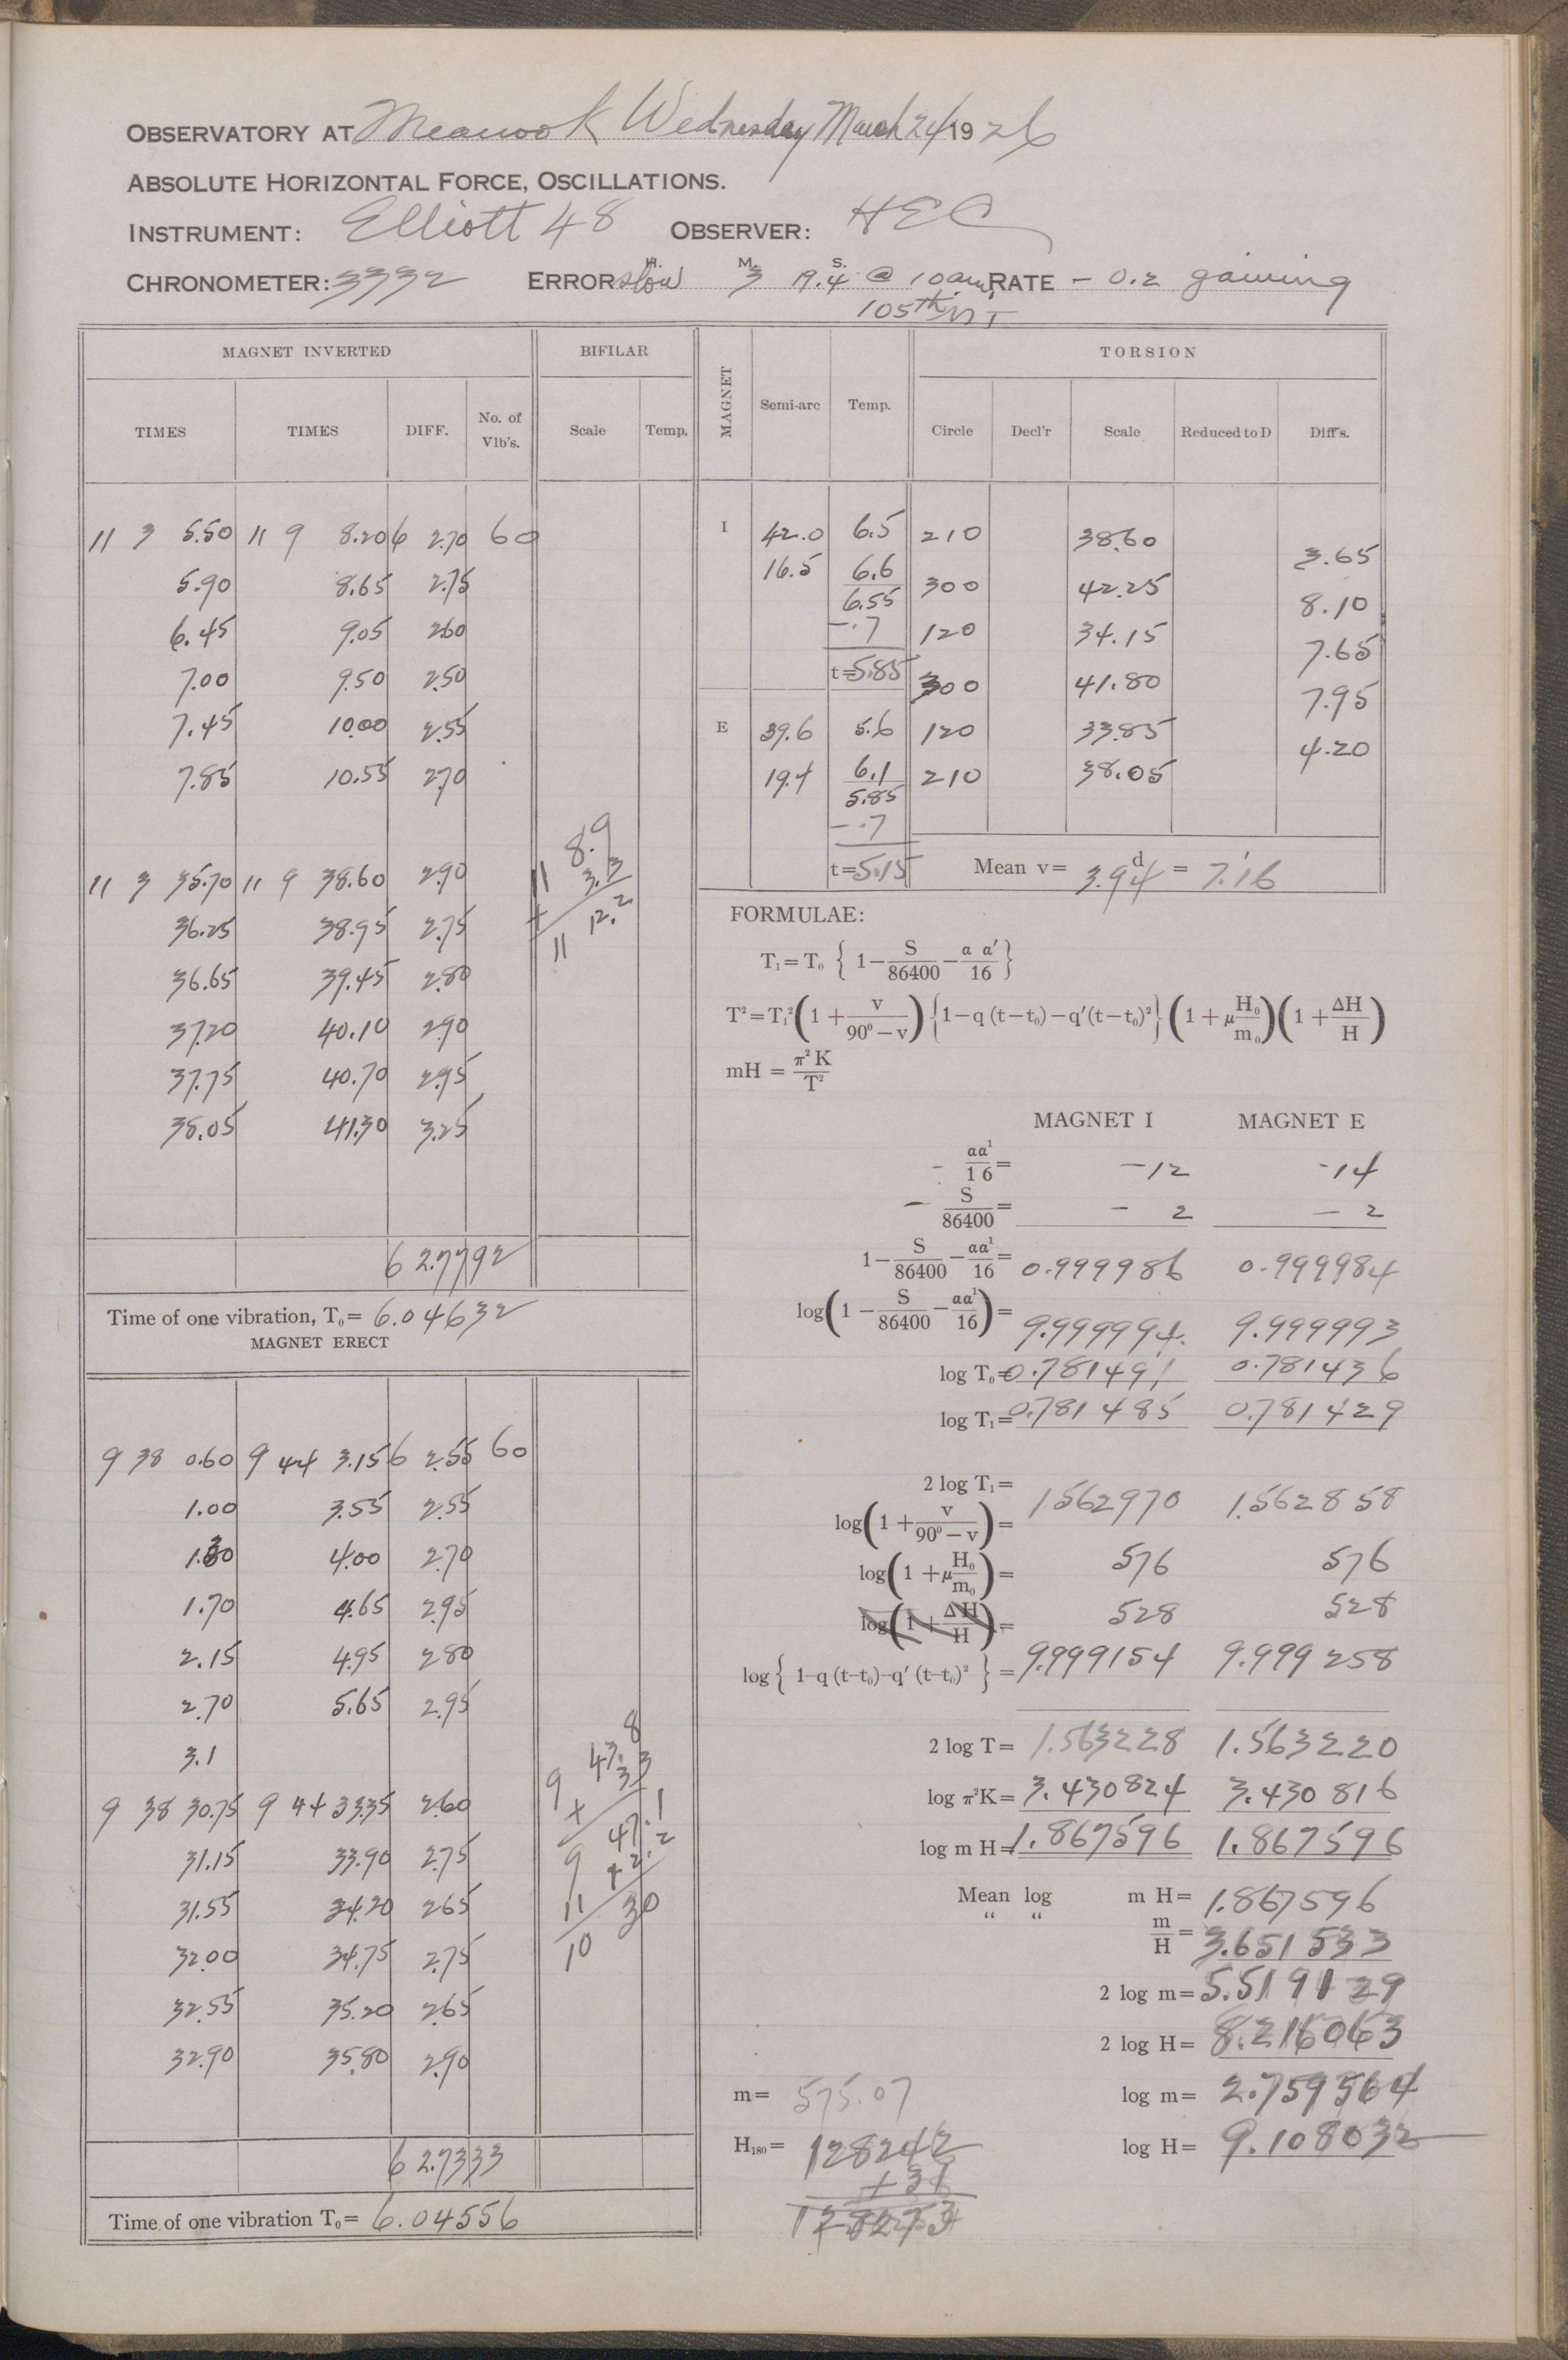 OBSERVATORY AT Meanook Wednesday March 24 1926
ABSOLUTE HORIZONTAL FORCE, OSCILLATIONS.
INSTRUMENT: Elliott 48 OBSERVER: HEC
CHRONOMETER: 3332 ERROR slow H. M. 3 S. 19.4 @ 10am RATE - 0.2 gaining
105th MT
MAGNET INVERTED BIFILAR
TIMES TIMES DIFF. No. of Vlb's. Scale Temp.
11 3 5.50 11 9 8.20 6 2.70 60
5.90 8.65 2.75
6.45 9.05 2.60
7.00 9.50 2.50
7.45 10.00 2.55
7.85 10.55 2.70
11 3 35.70 11 9 38.60 2.90
36.25 38.95 2.75
36.65 39.45 2.80
37.20 40.10 2.90
37.75 40.70 2.95
38.05 41.30 3.25
11 8.9
+ 3.3
11 12.2
6 2.7792
Time of one vibration, T₀= 6.04632
MAGNET ERECT
9 38 0.60 9 44 3.15 6 2.55 60
1.00 3.55 2.55
1.30 4.00 2.70
1.70 4.65 2.95
2.15 4.95 2.80
2.70 5.65 2.95
3.1
9 38 30.75 9 44 33.35 2.60
31.15 33.90 2.75
31.55 34.20 2.65
32.00 34.75 2.75
32.55 35.20 2.65
32.90 35.80 2.90
9 43.8
+ 3.3
9 47.1
11 + 2.2
10 30
6 2.7333
Time of one vibration T₀= 6.04556
MAGNET Semi-arc Temp. TORSION
Circle Decl'r Scale Reduced to D Diff's.
I 42.0 6.5 210 38.60
3.65
16.5 6.6 300 42.25
6.55 8.10
-.7 120 34.15
7.65
t=5.85 300 41.80
7.95
E 39.6 5.6 120 33.85
4.20
19.4 6.1 210 38.05
5.85
-.7
t=5.15 Mean v= 3.94 d = 7.'16
FORMULAE:
T₁=T₀ { 1− S/86400 − α α′/16 }
T²=T₁² (1+ v/90⁰−v) {1−q (t−t₀)−q′(t−t₀)²} (1+μ H₀/m₀)(1+ ΔH/H)
mH = π²K/T²
MAGNET I MAGNET E
- αα¹/16= -12 -14
- S/86400= - 2 - 2
1− S/86400 − αα¹/16= 0.999986 0.999984
log(1− S/86400 − αα¹/16)= 9.999994 9.999993
log T₀= 0.781491 0.781436
log T₁= 0.781485 0.781429
2 log T₁= 1562970 1.562858
log(1+ v/90⁰−v)= 576 576
log(1+μ H₀/m₀)= 528 528
log(1+ ΔH/H)=
log{ 1−q (t−t₀)−q′ (t−t₀)² }= 9.999154 9.999258
2 log T= 1.563228 1.563220
log π²K= 3.430824 3.430816
log m H= 1.867596 1.867596
Mean log m H= 1.867596
“ “ m/H= 3.651533
2 log m= 5.519129
2 log H= 8.216063
m= 575.07 log m= 2.759564
H₁₈₀= 128242 log H= 9.108032
+31
128273